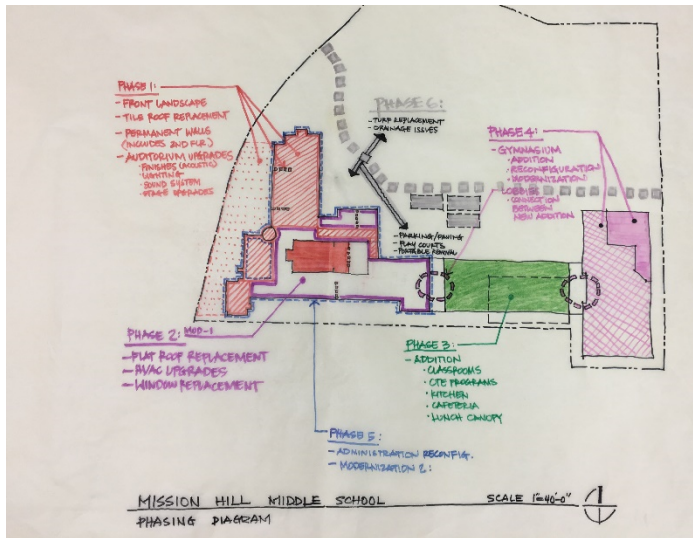 PHASE 1:
- FRONT LANDSCAPE
- TILE ROOF REPLACEMENT
- PERMANENT WALLS
(INCLUDES 2ND FLR.)
- AUDITORIUM UPGRADES
· FINISHES (ACOUSTIC)
· LIGHTING
· SOUND SYSTEM
· STAGE UPGRADES
PHASE 6:
- TURF REPLACEMENT
- DRAINAGE ISSUES
- PARKING/PAVING
- PLAY COURTS
- PORTABLE REMOVAL
PHASE 4:
- GYMNASIUM
· ADDITION
· RECONFIGURATION
· MODERNIZATION
- LOBBIES
· CONNECTION
BETWEEN
NEW ADDITION
PHASE 2: MOD-1
- FLAT ROOF REPLACEMENT
- HVAC UPGRADES
- WINDOW REPLACEMENT
PHASE 3:
- ADDITION
· CLASSROOMS
· CTE PROGRAMS
· KITCHEN
· CAFETERIA
· LUNCH CANOPY
PHASE 5:
- ADMINISTRATION RECONFIG.
- MODERNIZATION 2:
MISSION HILL MIDDLE SCHOOL
SCALE 1"=40'-0"
PHASING DIAGRAM